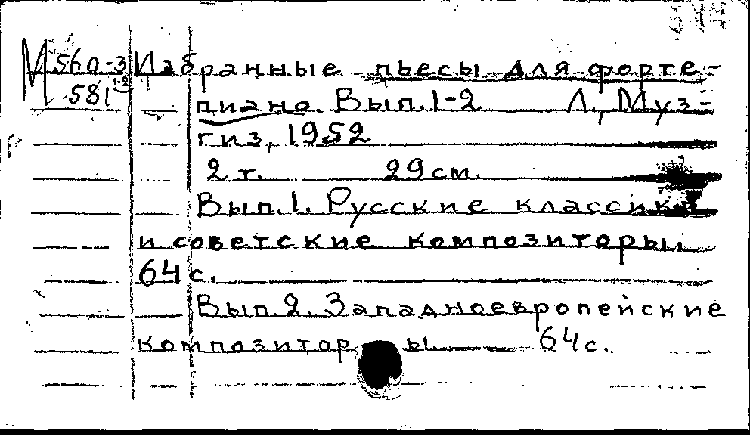 М 560-3 Избранные пьесы для форте-
581 1-2 пиано. Вып. 1-2 Л., Муз-
гиз, 1952
2 т. 29 см.
Вып. 1. Русские классики
и советские композиторы.
64 с.
Вып. 2. Западноевропейские
композиторы 64 с.